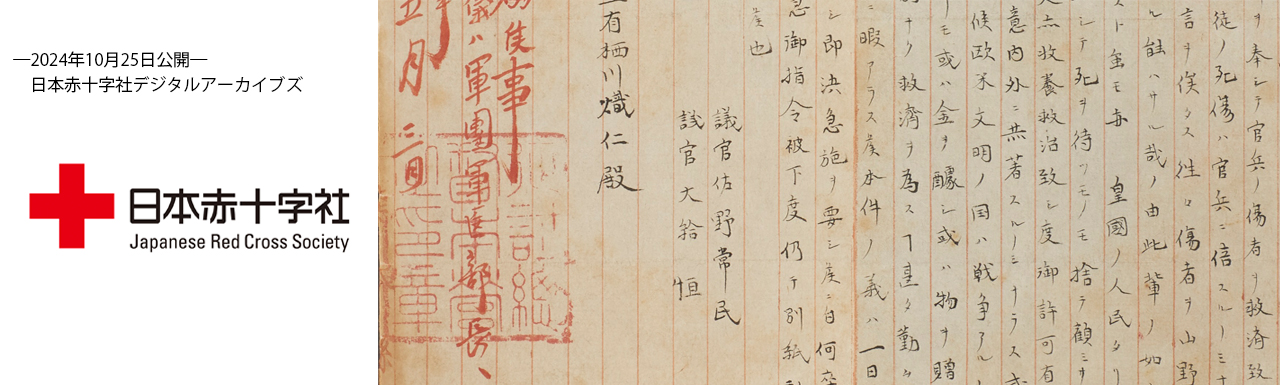 ―2024年10月25日公開―
日本赤十字社デジタルアーカイブズ
日本赤十字社
Japanese Red Cross Society
ヲ奉シテ官兵ノ傷者ヲ救済致
徒ノ死傷ハ官兵ニ倍スルノミナ
言ヲ俟タス往々傷者ヲ山野
ル能ハサル哉ノ由此輩ノ如
ト雖モ亦 皇國ノ人民タリ
シテ死ヲ待ツモノモ捨テ顧ミサ
救養救治致シ度御許可有
意内外ニ共著スルノミナラス
候欧米文明ノ国ハ戦争アル
モ或ハ金ヲ醵シ或ハ物ヲ贈
ナク救済ヲ為ス
ニ暇アラス候本件ノ義ハ一日
シ即決急施ヲ要シ候ニ自何卒
急御指令被下度仍テ別紙
候也
議官佐野常民
議官大給恒
有栖川熾仁殿
事
軍團軍医部長
五月三日